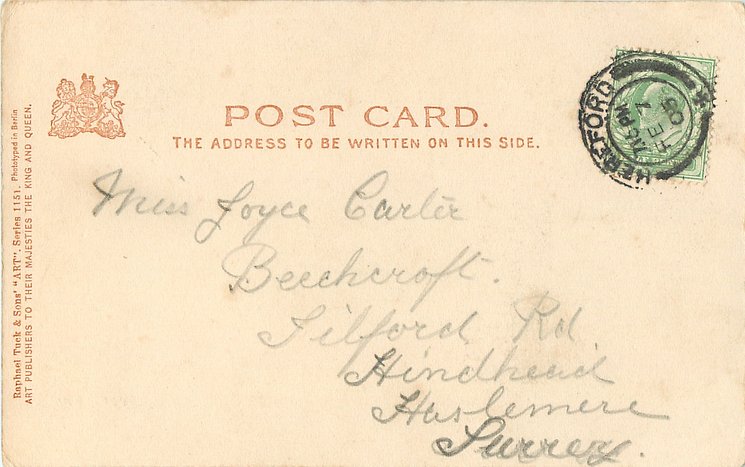 POST CARD.
THE ADDRESS TO BE WRITTEN ON THIS SIDE.
HEREFORD
Miss Joyce Carter
Beechcroft.
Tilford Rd
Hindhead
Haslemere
Surrey.
Raphael Tuck & Sons' "ART". Series 1151. Phototyped in Berlin
ART PUBLISHERS TO THEIR MAJESTIES THE KING AND QUEEN.